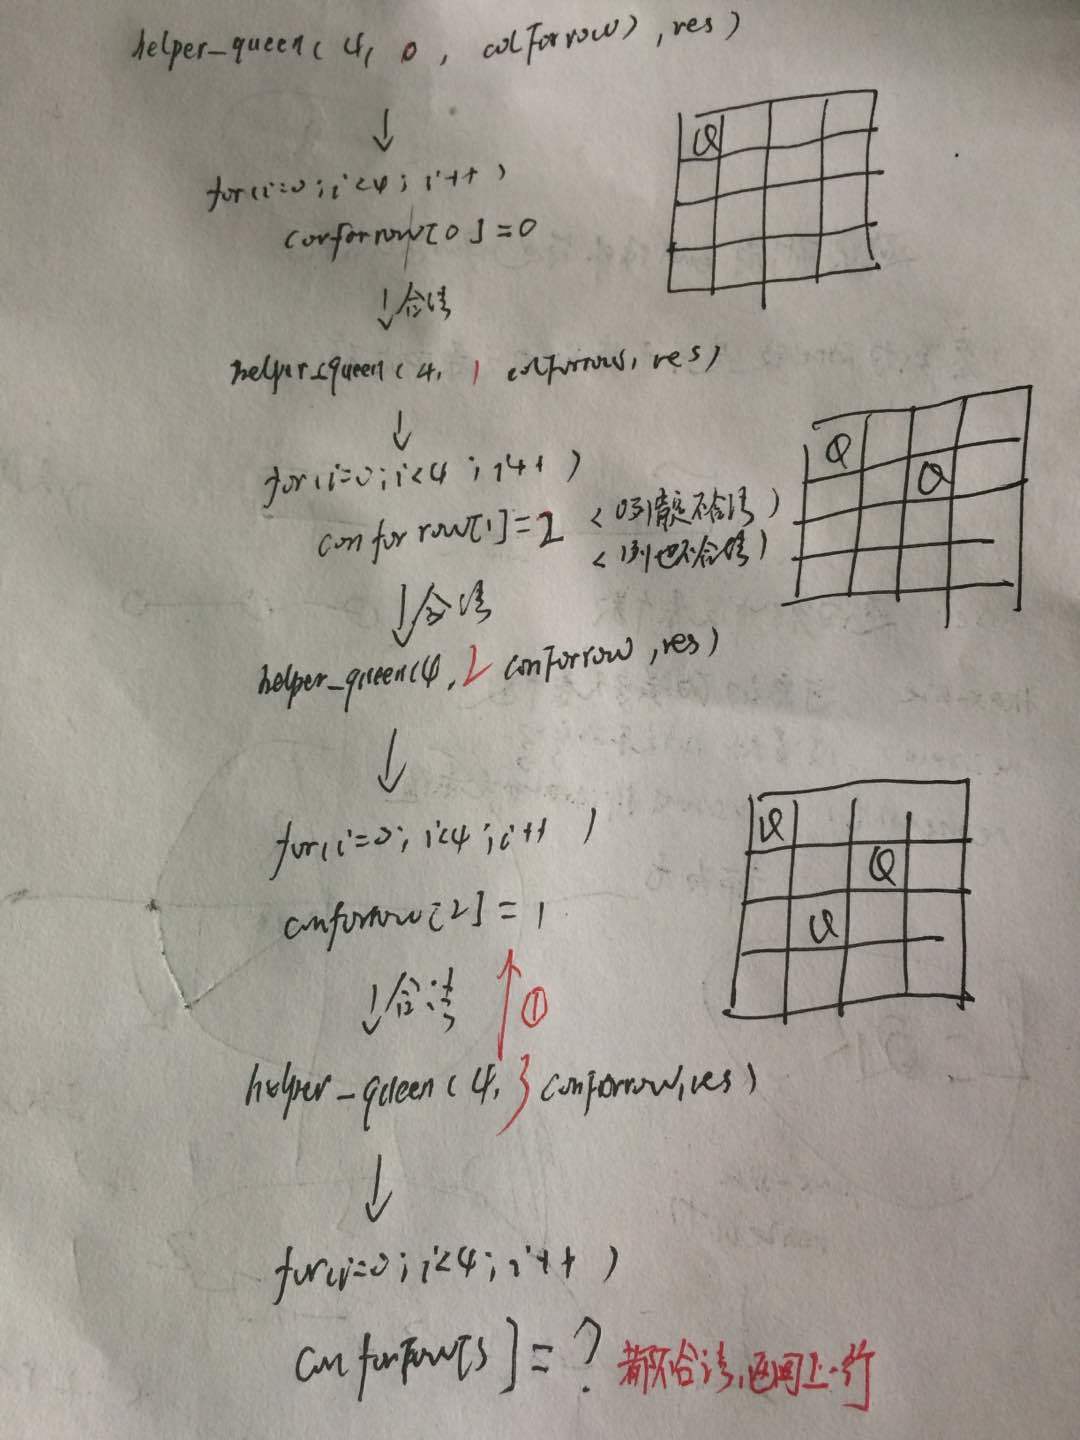 helper_queen( 4, 0 , colForrow) , res )
↓
for(i=0 ; i<4 ; i++ )
colforrow[0]=0
↓合法
Q
helper_queen( 4, 1 colforrow, res)
↓
for(i=0; i<4 ; i++ )
conforrow[1]=2 <0列肯定不合法)
<1列也不合法)
Q
Q
↓合法
helper_queen(4, 2 conforrow , res)
↓
for(i=0; i<4 ; i++ )
conforrow[2] = 1
Q
Q
Q
↓合法 ↑①
helper_queen( 4, 3 conforrow, res)
↓
for(i=0 ; i<4 ; i++ )
conforrow[3]=? 都不合法,返回上一行